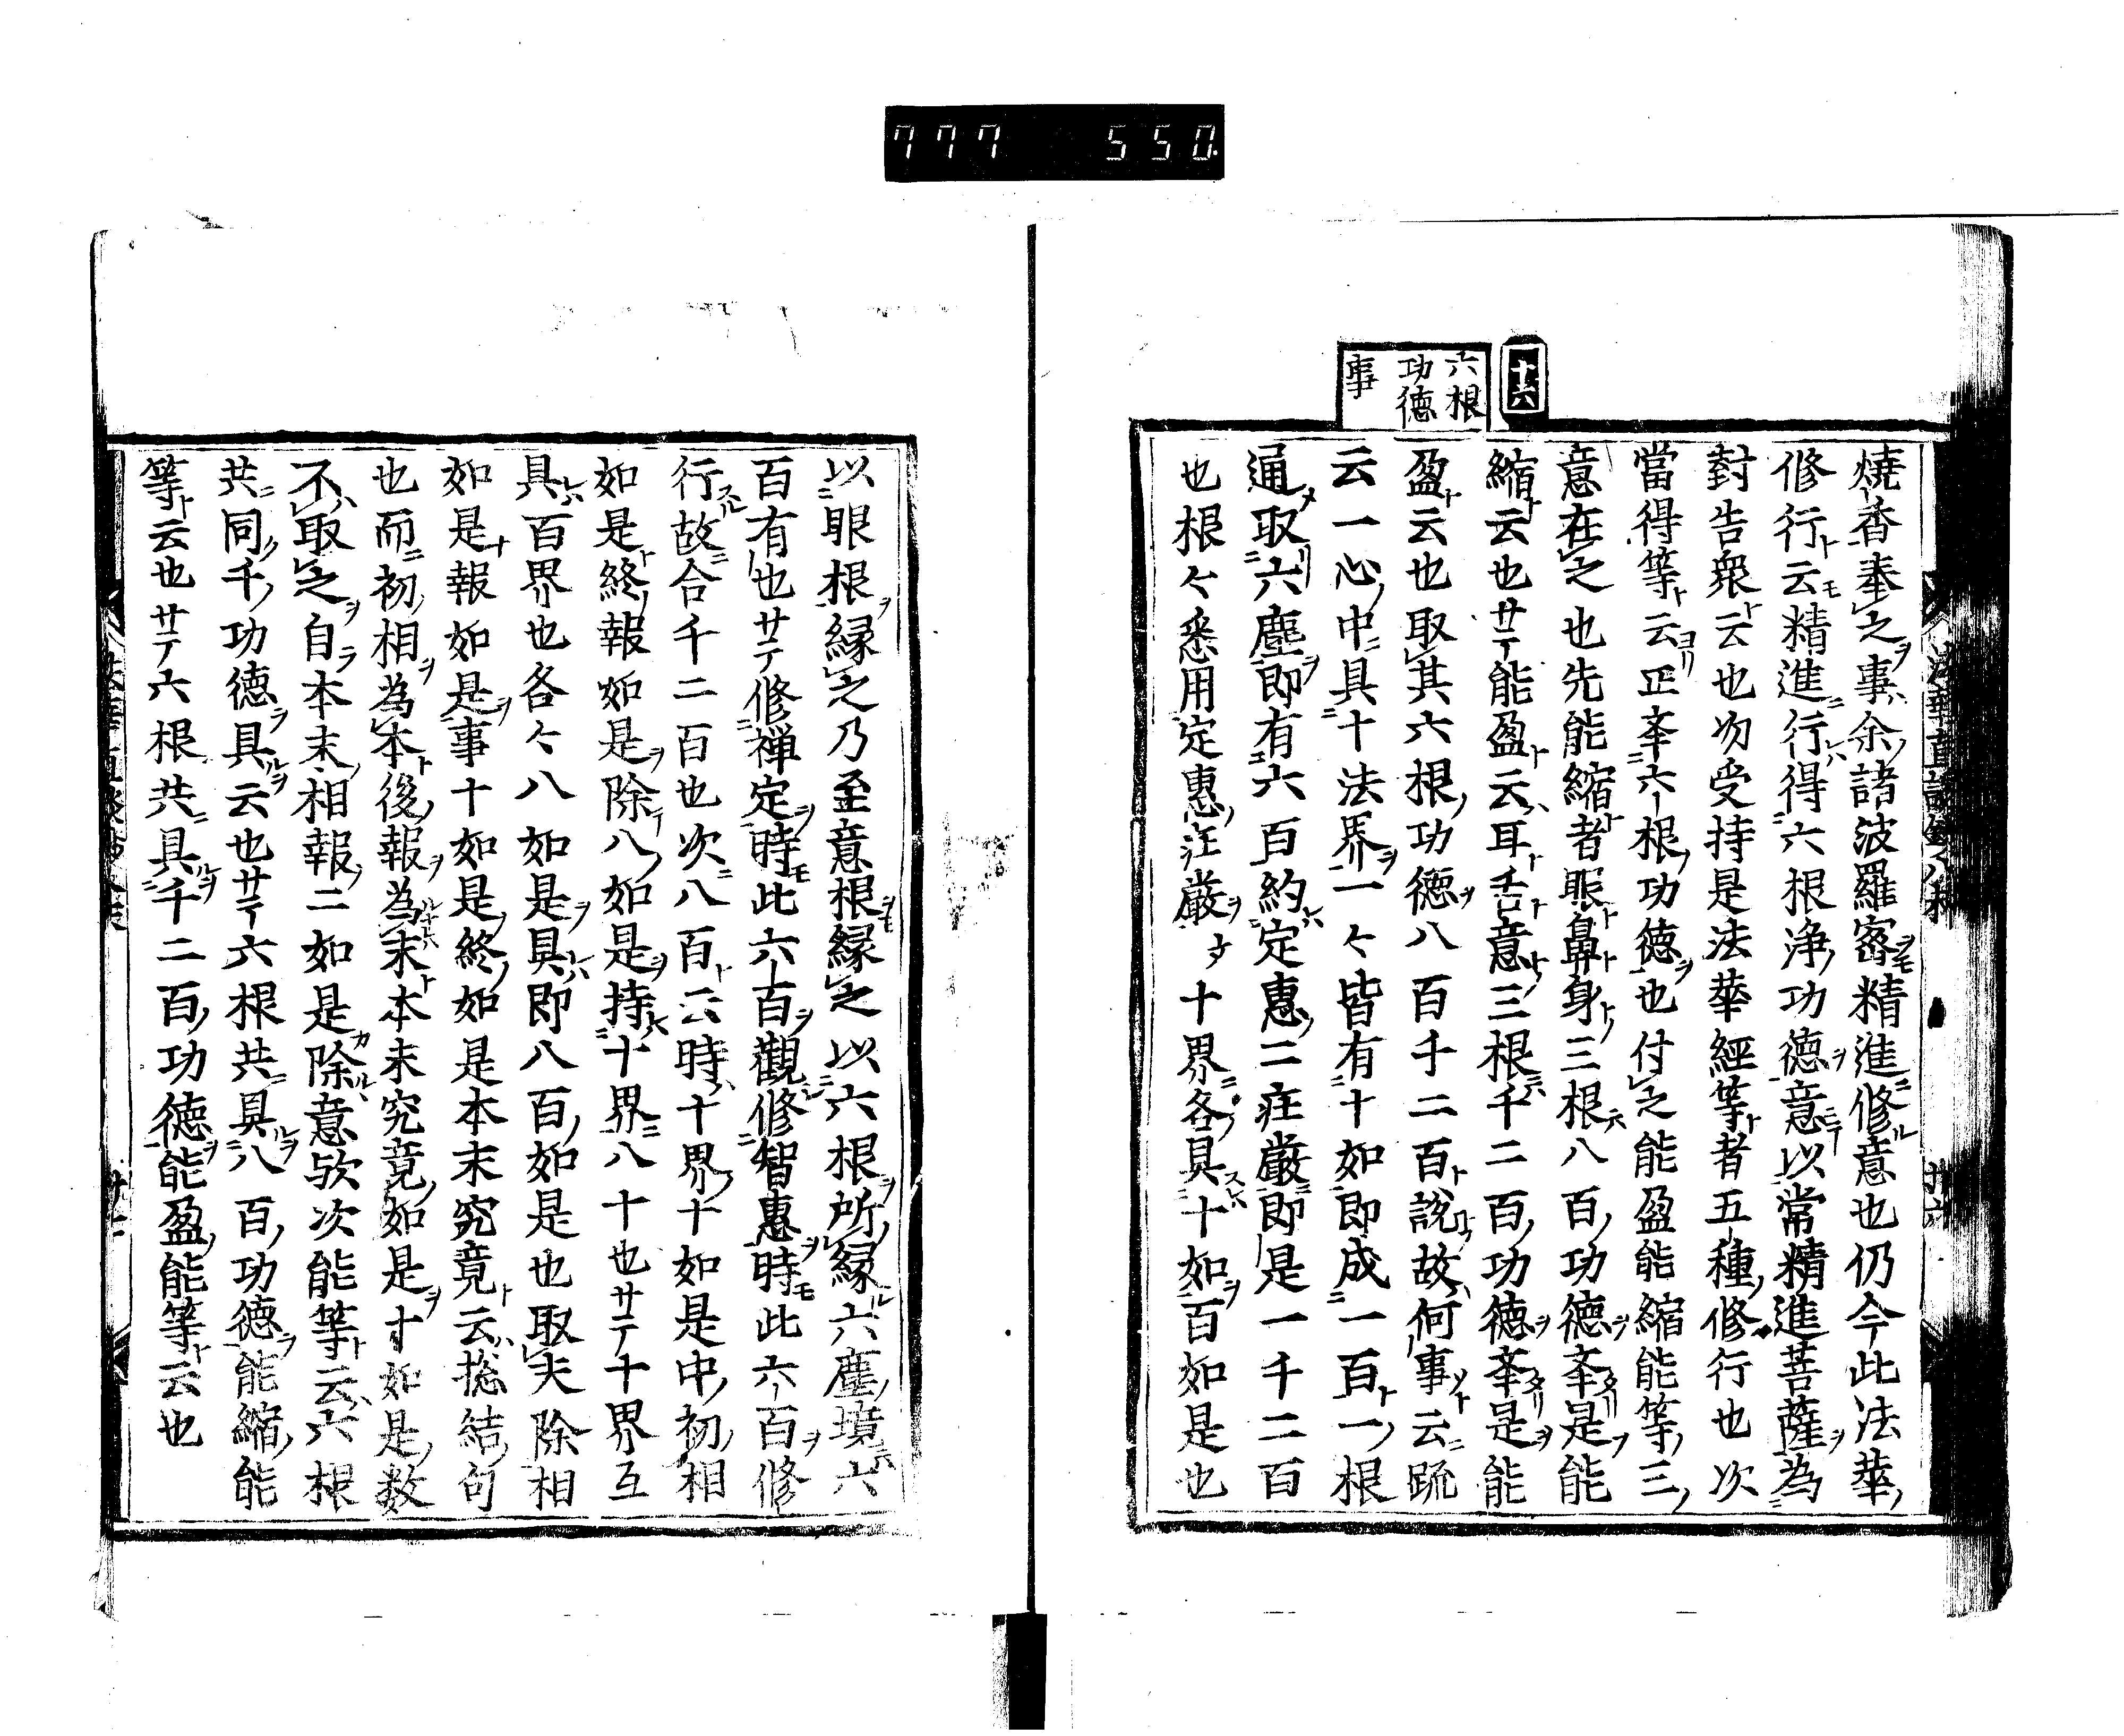 777 550
十六
六根
功德
事
燒香奉之事余諸波羅密精進修意也仍今此法華
修行云精進行得六根浄功德意以常精進菩薩為
對告衆云也次受持是法華經等者五種修行也次
當得等云正夲六根功徳也付之能盈能縮能等三
意在之也先能縮者眼鼻身三根八百功德夲是能
縮云也サテ能盈云耳舌意三根千二百功徳夲是能
盈云也取其六根功徳八百千二百說故何事云䟽
云一心中具十法界一々皆有十如即成一百一根
通取六塵即有六百約定惠二莊嚴即是一千二百
也根々悉用定惠庄嚴 十界各具十如百如是也
以眼根緣之乃至意根緣之以六根所緣六塵境六
百有也サテ修禅定時此六百觀修智惠時此六百修
行故合千二百也次八百云時十界十如是中初相
如是終報如是除八如是持十界八十也サテ十界互
具百界也各々八如是具即八百如是也取夫除相
如是報如是事十如是終如是本末究竟云捴結句
也而初相為本後報為末本末究竟如是寸如是数
不取之自本末相報二如是除意欤次能等云六根
共同千功德具云也サテ六根共具八百功德能縮能
等云也サテ六根共具千二百功徳能盈能等云也